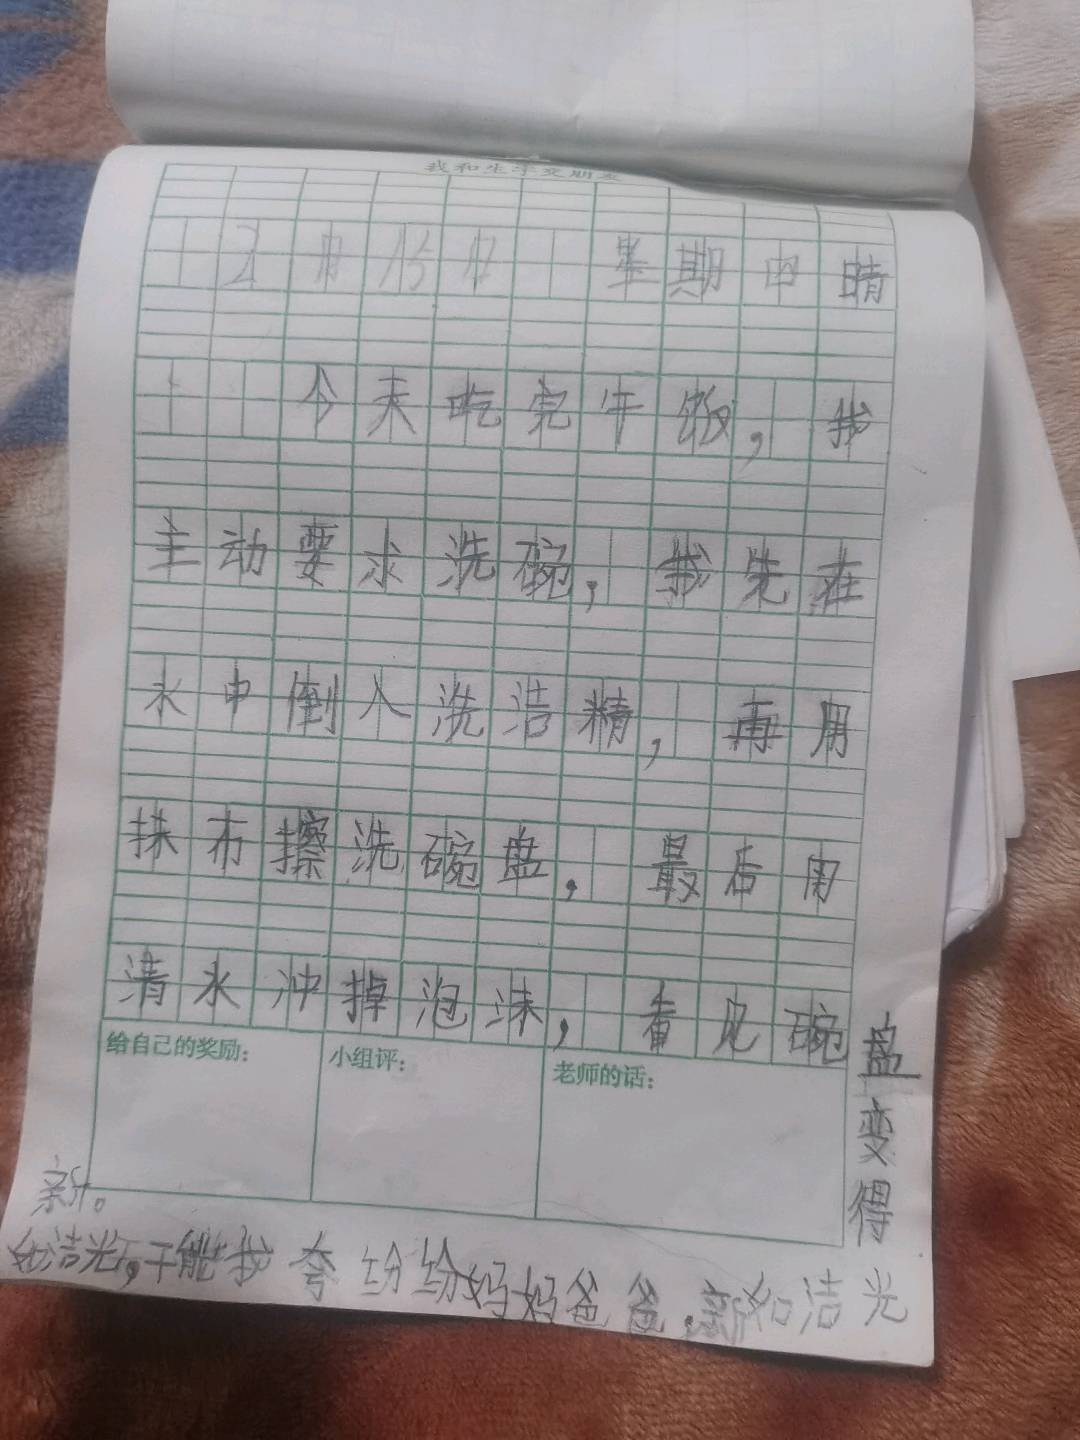 我和生字交朋友
2月15日 星期四晴
今天吃完午饭，我
主动要求洗碗，我先在
水中倒入洗洁精，再用
抹布擦洗碗盘，最后用
清水冲掉泡沫，看见碗
盘变得
光洁如新，爸爸妈妈纷纷夸我能干，光洁如
新。
给自己的奖励：
小组评：
老师的话：